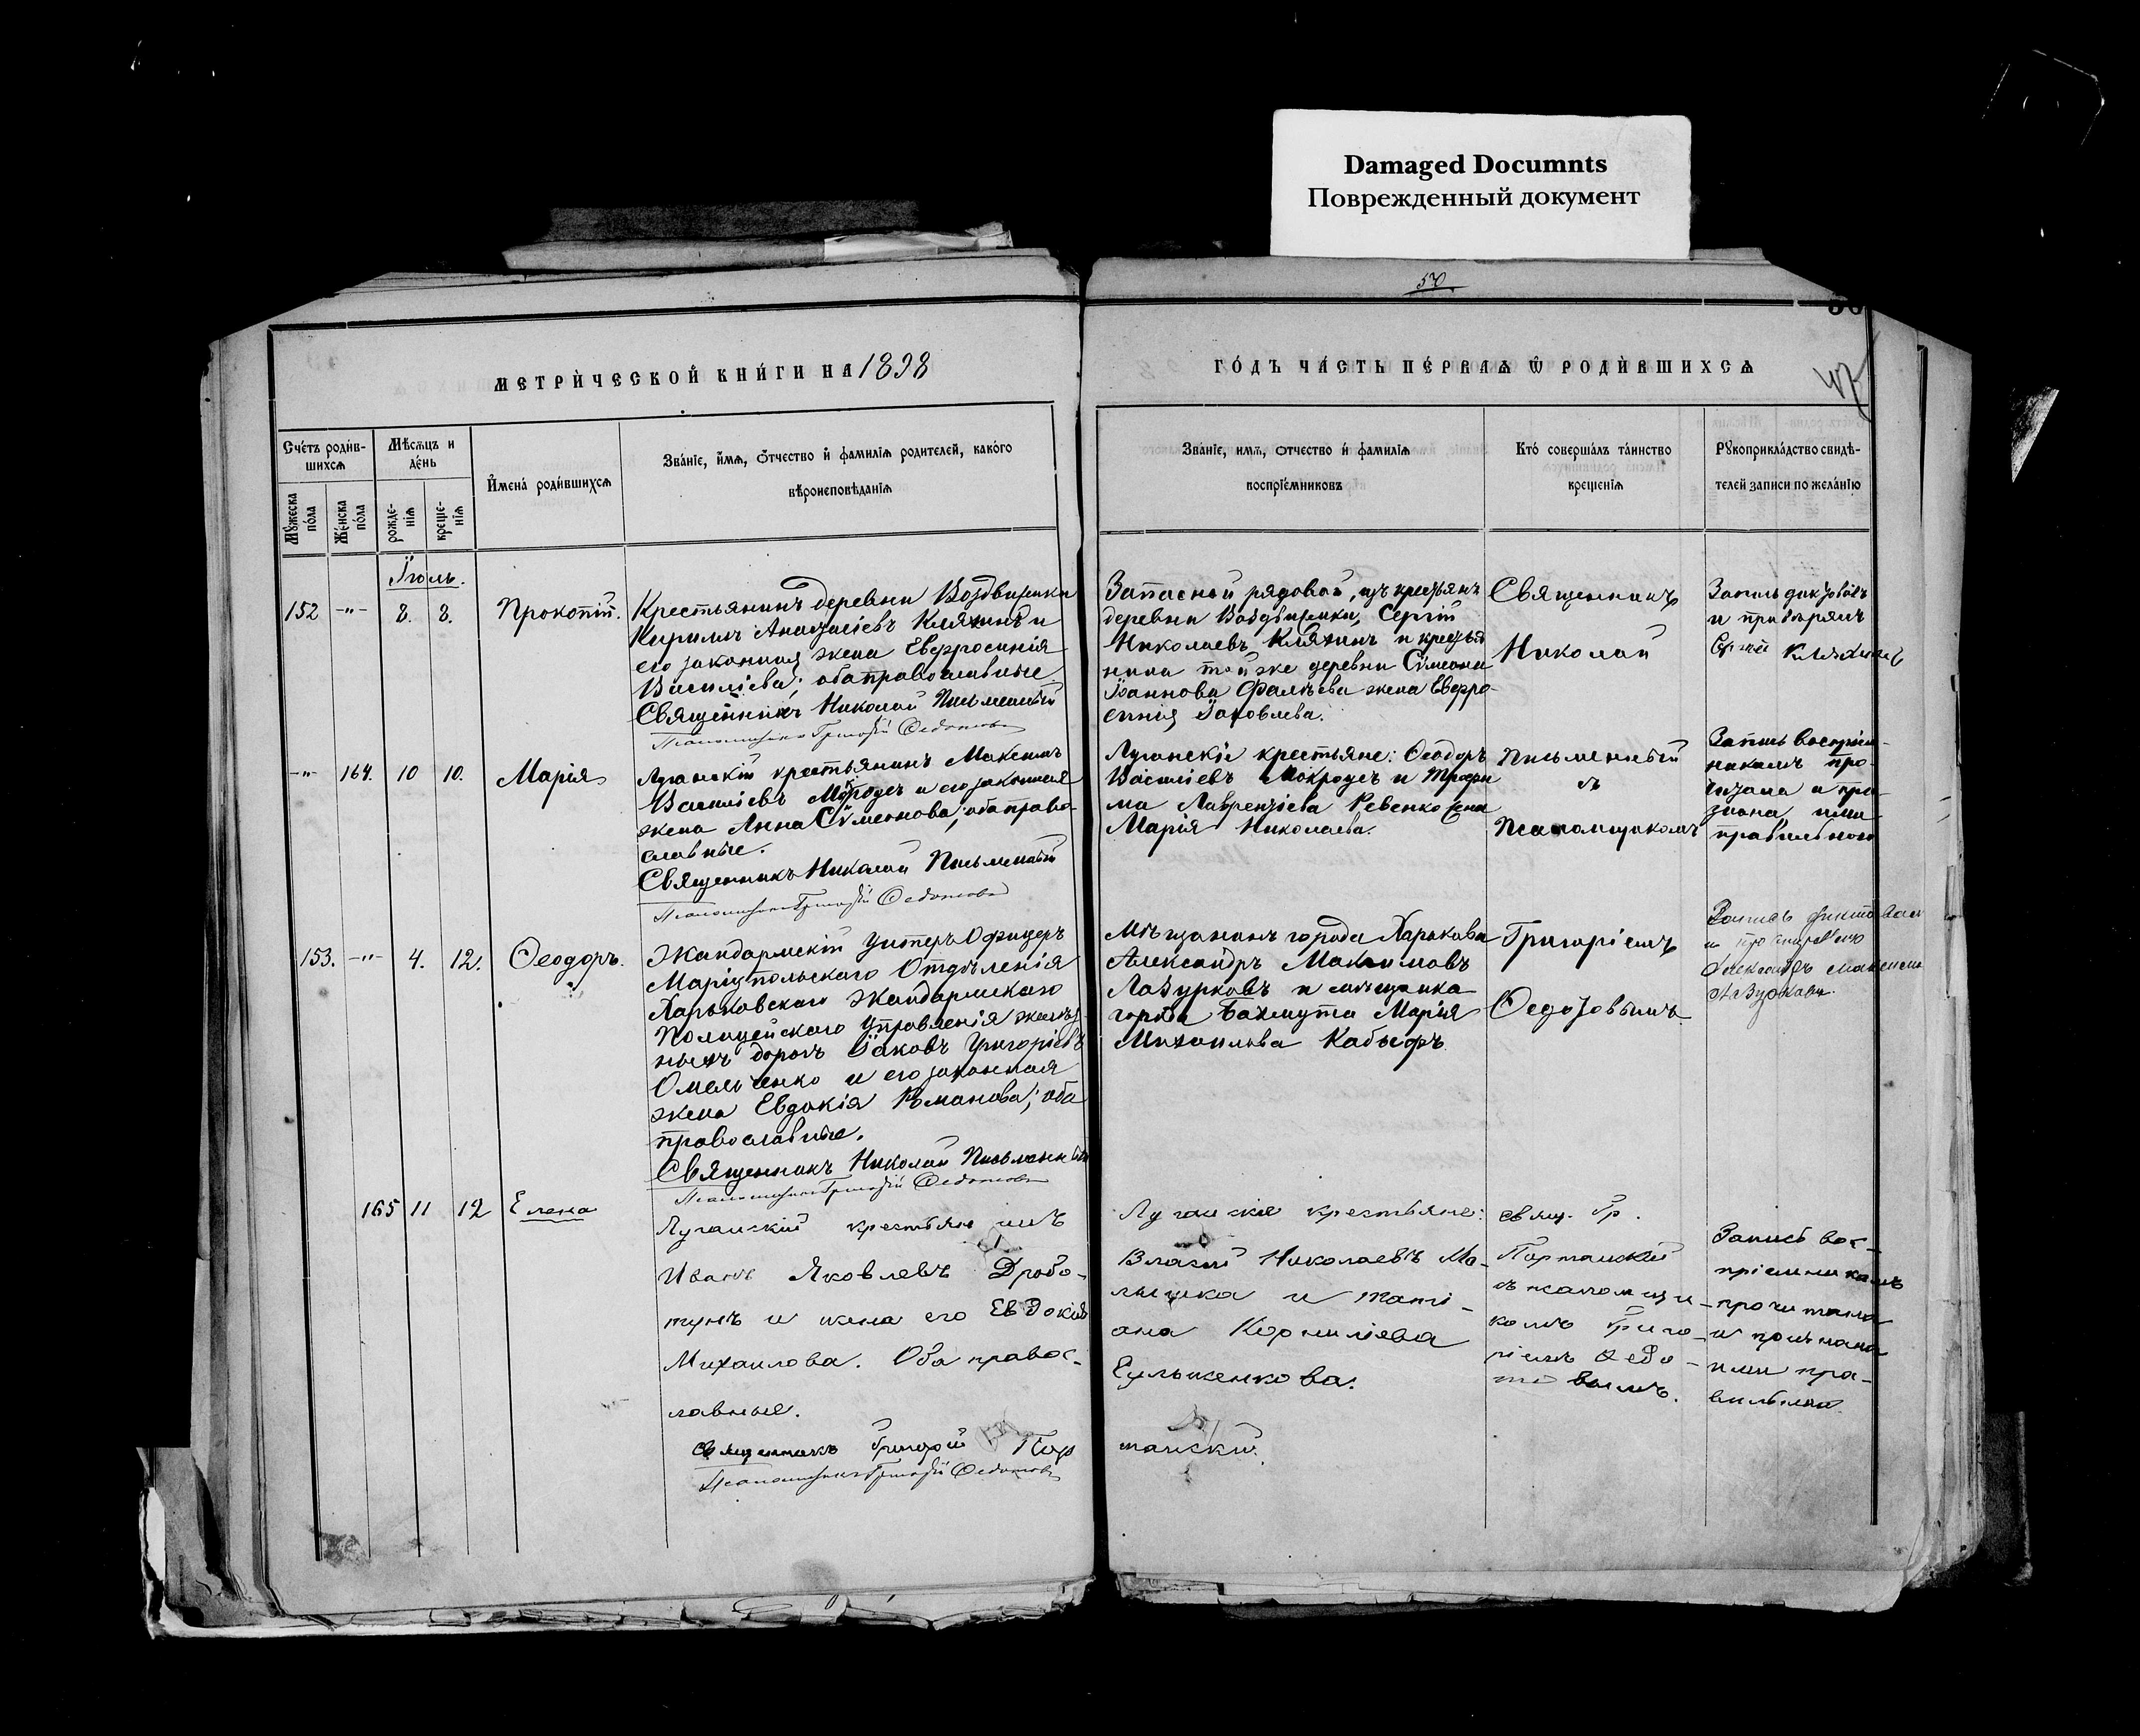 Damaged Documnts
Поврежденный документ
50.
МЕТРИЧЕСКОЙ КНИГИ НА 1898
ГОДЪ ЧАСТЬ ПЕРВАЯ Ѿ РОДИВШИХСЯ
Счетъ родив-
шихся
Мѣсяцъ и
день
Мужеска пола
Женска пола
рожде-
нія
креще-
нія
Имена родившихся
Званіе, имя, отчество и фамилія родителей, какого
вѣроисповѣданія
Званіе, имя, отчество и фамилія
воспріемниковъ
Кто совершалъ таинство
крещенія
Рукоприкладство свидѣ-
телей записи по желанію
Іюль.
152 -"- 8. 8. Прокопій.
Крестьянинъ деревни Воздвиженки
Кириллъ Анастасіевъ Кляхинъ и
его законная жена Евфросинія
Василіева; оба православные.
Священникъ Николай Письменный
Псаломщикъ Григорій Федотовъ
Запасной рядовой, изъ крестьянъ
деревни Воздвиженки, Сергій
Николаевъ Кляхинъ и крестья
нина той же деревни Сѵмеона
Іоаннова Фалѣева жена Евфро-
синія Іаковлева.
Священникъ
Николай
и
Сергей Кляхинъ
-"- 164. 10 10. Марія
Луганскій крестьянинъ Максимъ
Василіевъ Мокроусъ и его законная
жена Анна Сѵмеонова; оба право-
славные.
Священникъ Николай Письменный
Псаломщикъ Григорій Федотовъ
Луганскіе крестьяне: Ѳеодоръ
Василіевъ Мокроусъ и Трофи
ма Лаврентіева Ревенко жена
Марія Николаева.
Письменный
съ
Псаломщикомъ
Запись воспріем-
никамъ про-
читана и при-
знана ими
правильною
153. -"- 4. 12. Ѳеодоръ.
Жандармскій Унтеръ Офицеръ
Маріупольскаго Отдѣленія
Харьковскаго Жандармскаго
Полицейскаго Управленія желѣз
ныхъ дорогъ Іаковъ Григоріевъ
Омельченко и его законная
жена Евдокія Романова; оба
православные.
Священникъ Николай Письменный
Псаломщикъ Григорій Федотовъ
Мѣщанинъ города Харькова
Александръ Максимовъ
Лазурковъ и мѣщанка
города Бахмута Марія
Михаилова
Григоріемъ
Ѳедотовымъ.
Запись
и
Александръ
165 11 12 Елена
Луганскій крестьянинъ
Иванъ Яковлевъ Дробо-
тунъ и жена его Евдокія
Михаилова. Оба правос-
лавные.
Священникъ Григорій Пор
Псаломщикъ Григорій Федотовъ
Луганскіе крестьяне:
Власій Николаевъ Ма-
лышка и Тати-
ана Корниліева
танскій.
Свящ. Гр.
Портанскій
съ псаломщи-
комъ Григо-
ріемъ Ѳедо-
товымъ.
Запись вос-
пріемникамъ
прочитана
и признана
ими пра-
вильною